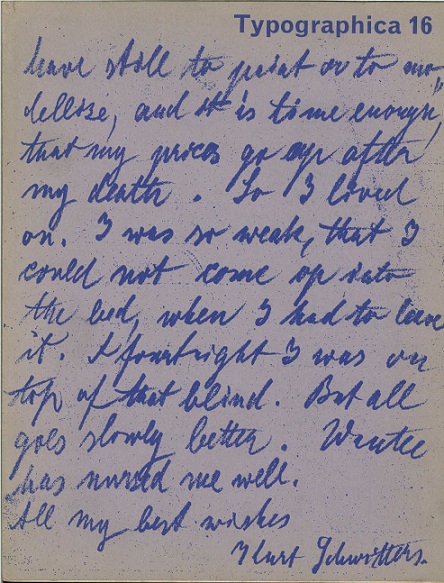 Typographica 16
have still to paint or to mo-
dellise, and it is time enough,
that my prices go up after
my death. So I lived
on. I was so weak, that I
could not come op into
the bed, when I had to leave
it. A fourtnight I was on
top of that blind. But all
goes slowly better. Wantee
has nursed me well.
All my best wishes
Kurt Schwitters.